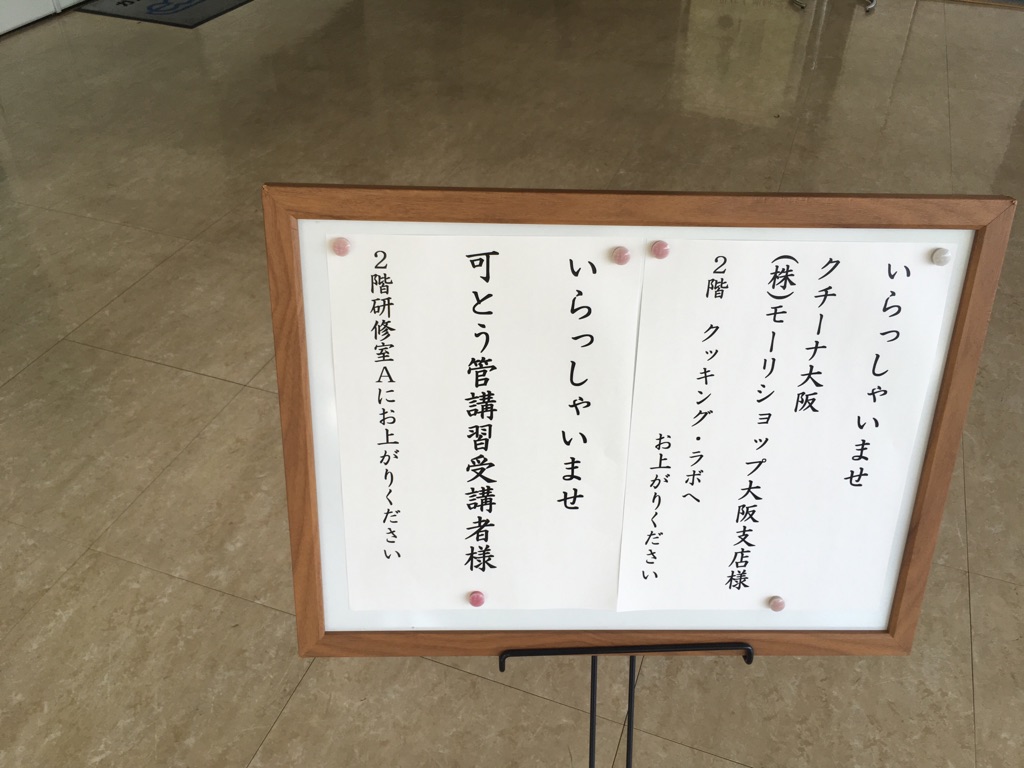 いらっしゃいませ
クチーナ大阪
(株)モーリショップ大阪支店様
2階 クッキング・ラボへ
お上がりください
いらっしゃいませ
可とう管講習受講者様
2階研修室Aにお上がりください